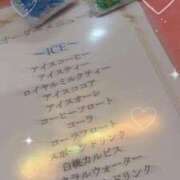 〜ICE〜
アイスコーヒー
アイスティー
ロイヤルミルクティー
アイスココア
アイスオーレ
コーヒーフロート
コーラ
コーラフロート
スポーツドリンク
白桃カルピス
ミネラルウォーター
ドリンク